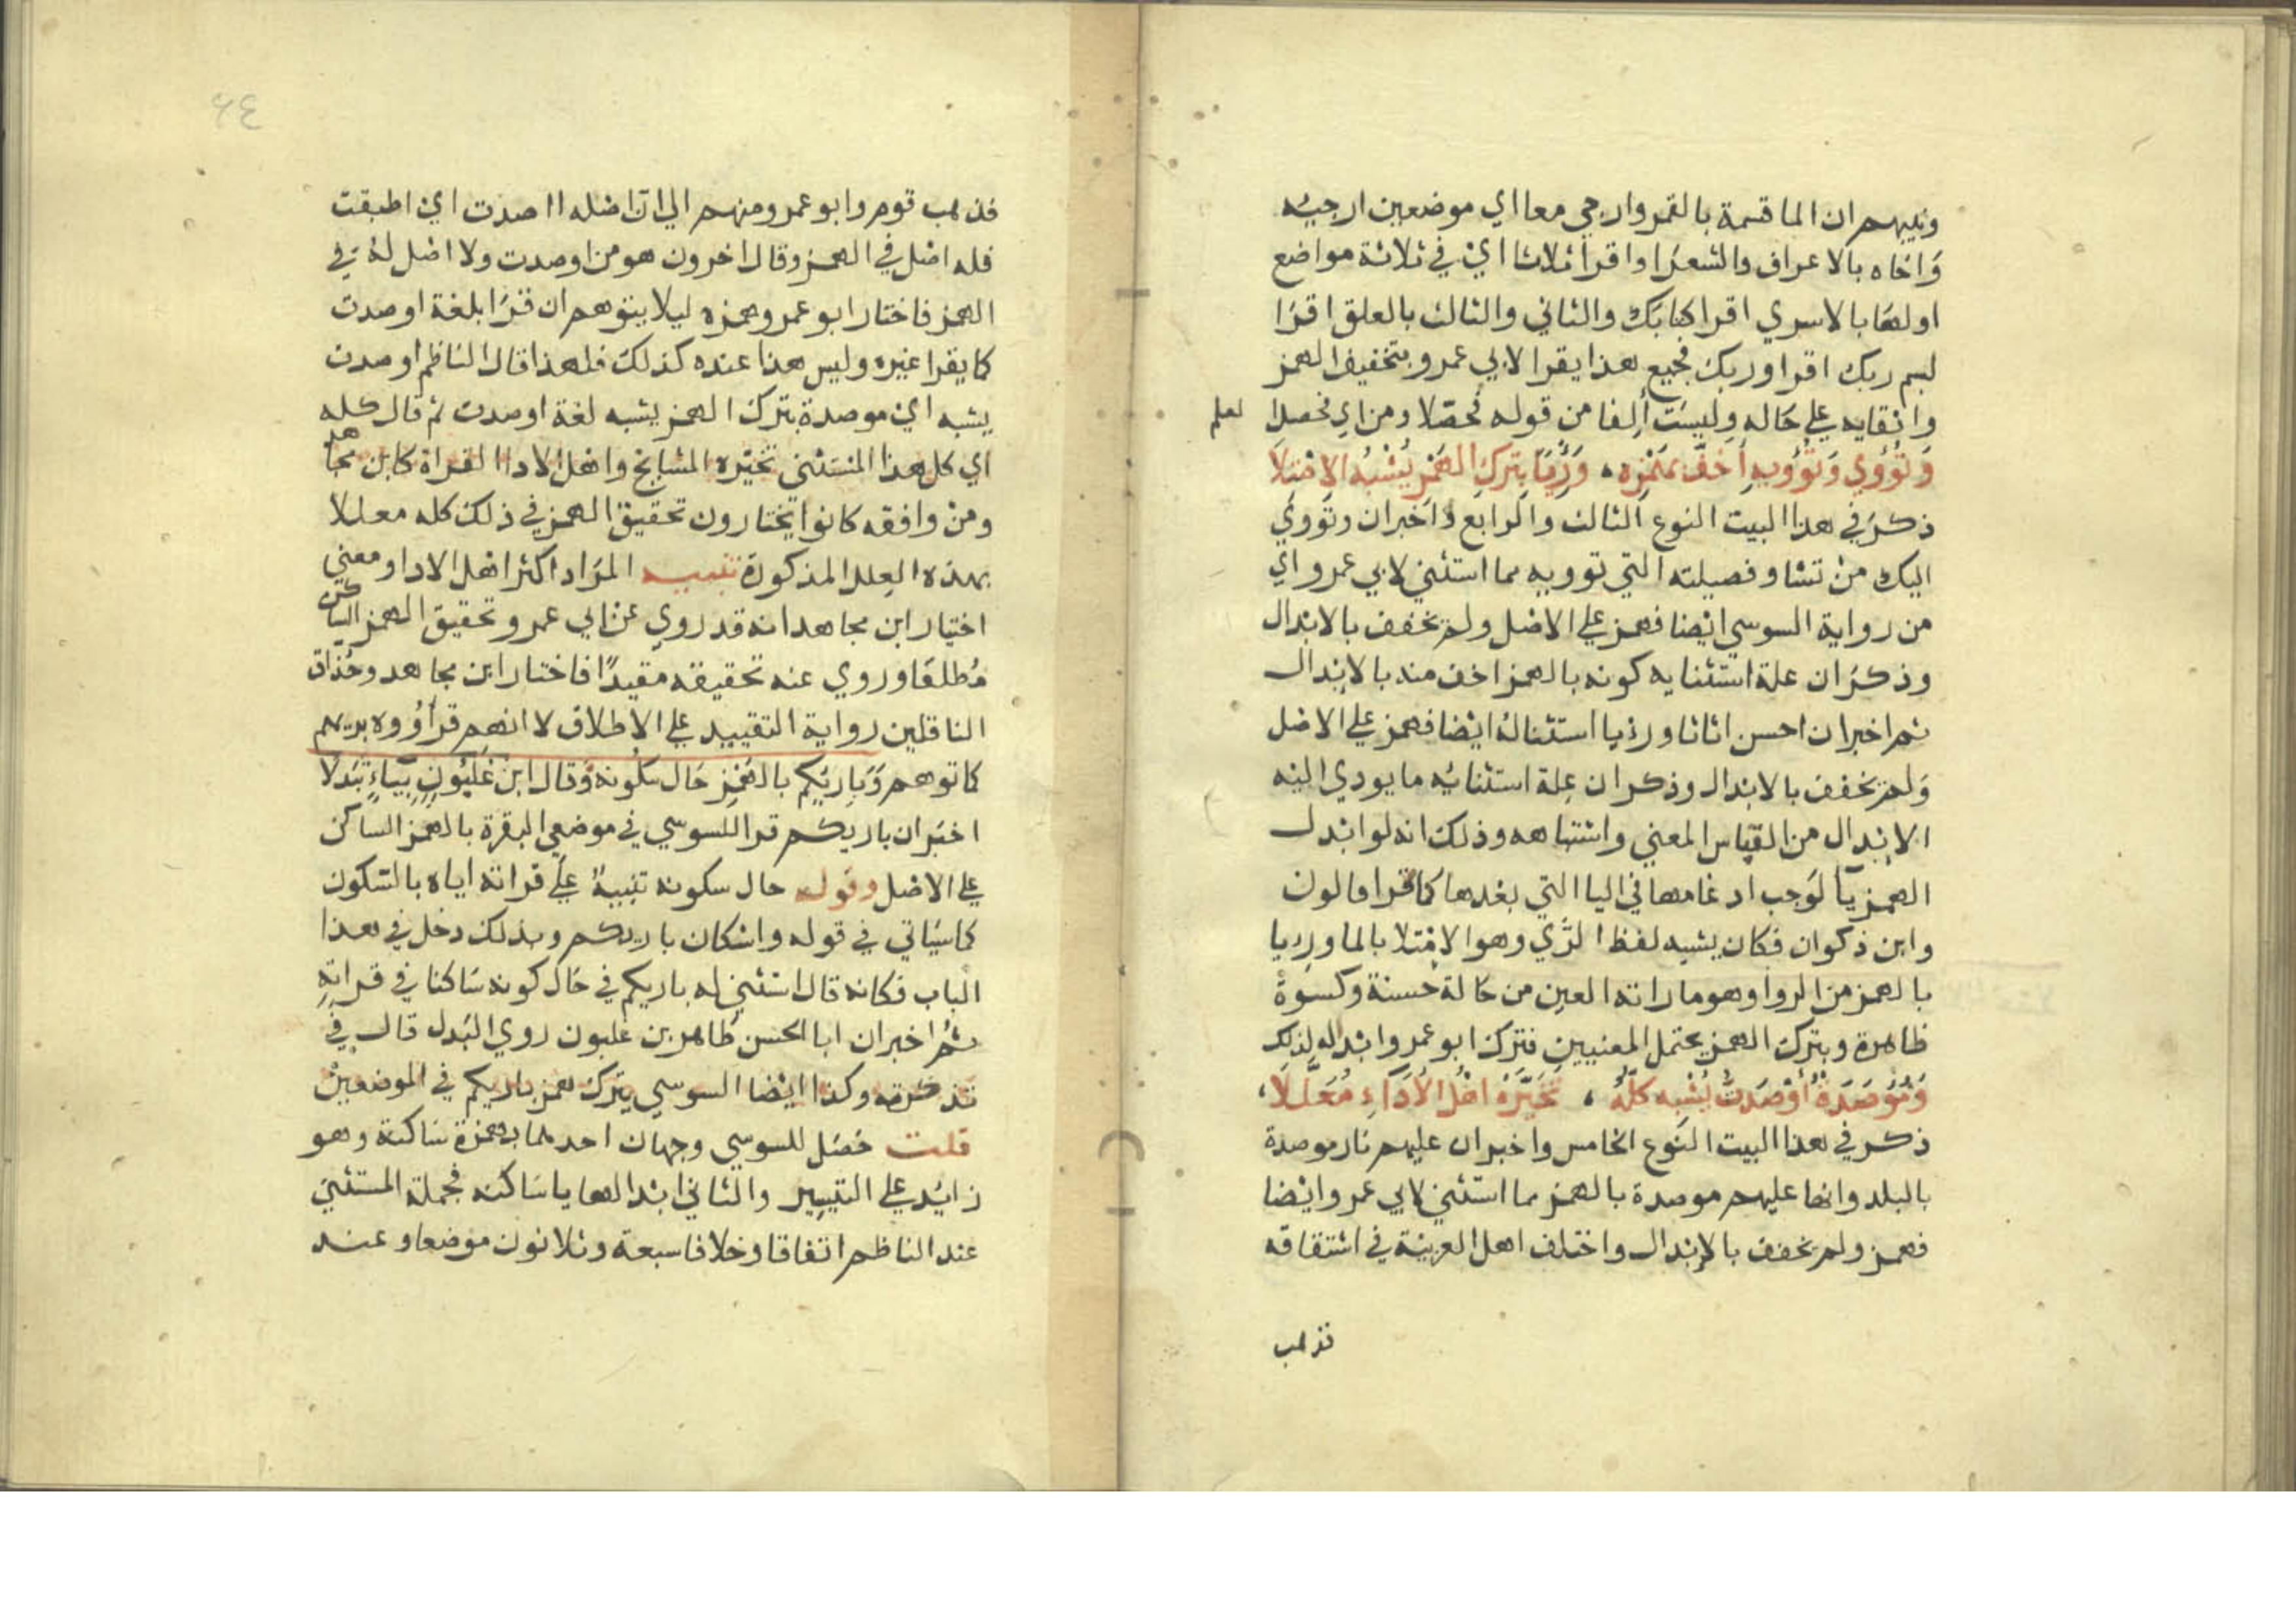 ونبيهم ان الما قسمة بالقمر وارجي معا اي موضعين ارجيه
وَاخاه بالاعراف والشعرا واقرا ثلاثا اي في ثلاثة مواضع
اولها بالاسري اقرا كتابك والثاني والثالث بالعلق اقرا
بسم ربك اقرا وربك فجميع هذا يقرا لابي عمرو بتخفيف الهمز
وابقايه علي حاله وليست ألفا من قوله فحصّلا ومن اي فحصلا
وَتُؤوِي وَتُؤويهِ أَخَفّ بِهَمْزِهِ ، وَرِئيًا بِتَركِ الهَمْزِ يُشْبِهُ الامْتِلَا
ذكر في هذا البيت النوع الثالث والرابع واخبر ان وتَووي
اليك من تشا وفصيلته التي توويه مما استثني لابي عمرو اي
من رواية السوسي ايضا فهمز علي الاصل ولم يخفف بالابدال
وذكر ان علة استثنايه كونه بالهمز اخف منه بالابدال
ثم اخبر ان احسن اثاثا ورئيا استثناله ايضا فهمز علي الاصل
وَلم يخفف بالابدال وذكر ان عِلة استثنائه ما يودي اليه
الابدال من القباس المعني واشتباهه وذلك انه لو ابدل
الهمز يآ لوَجب ادغامها في اليا التي بعدها كما قرا قالون
وابن ذكوان فكان يشبه لفظ الرِّي وهو الامتلا بالما وررِيا
بالهمز من الروا وهو ما راته العين من حالة حسنة وكسوة
ظاهرة وبترك الهمز يحتمل المعنيين فترك ابو عمرو ابداله لذلك
وَمُؤصَدَةٌ أوْصَدتُّ يُشْبِه كلّهُ ، تَخَيَّرَهُ اهْلُ الأَدَاءِ مُعَلَّلَا ،
ذكر في هذا البيت النوع الخامس واخبر ان عليهم نار موصدة
بالبلد وانها عليهم موصدة بالهمز مما استثني لابي عمرو ايضا
فهمز ولم يخفف بالابدال واختلف اهل العربية في اشتقاقه
فذهب
٦٤
فذهب قوم وابو عمرو منهم الي ان اصله ااصدت اي اطبقت
فله اصل في الهمز وقال اخرون هو من اوصدت ولا اصل له في
الهمز فاختار ابو عمرو همزه ليلا يتوهم ان قرَا بلغة اوصدت
كما يقرا غيره وليس هذا عنده كذلك فلهذا قال الناظم اوصدت
يشبه اي موصدة بترك الهمز يشبه لغة اوصدت ثم قال كله
اي كل هذا المستثني تخيّره المشايخ واهل الادا القراة كابن مجاهد
ومن وافقه كانوا يختارون تحقيق الهمز في ذلك كله معللا
بهذه العِلل المذكورة تنبيه المرَاد اكثر اهل الادا ومعني
اختيار ابن مجاهد انه قد روي عن ابي عمرو تحقيق الهمز الساكن
مُطلقا وروي عنه تحقيقه مقيدًا فاختار ابن مجاهد وحُذاق
الناقلين رواية التقييد علي الاطلاق لا انهم قرأوُوه بريهم
كما توهم وَبَارِئِكُم بالهَمْزِ حَال سُكونه وَقال ابن غَلبُونٍ بِيَاءٍ تَبَدلا
اخبَر ان باريكم قرا للسوسي في موضعي البقرة بالهمز الساكن
علي الاصل وقوله حال سكونه تنبيهٌ علي قراته اياه بالسّكون
كما سيَاتي في قوله واسْكان باريكم وبذلك دخل في هذا
الباب فكانه قال استثني له باريكم في حَال كونه سَاكنا في قراتِهِ
ثم اخبر ان ابا الحسن طاهر بن غلبون روي البَدل قال في
تذكرته وكذا ايضا السوسي بترك همز باريكم في الموضعين
قلت حَصَل للسوسي وجهان احدهما بهمزة سَاكنة وهو
زائيد علي التيسير والثاني ابدالها يا ساكنه فجملة المستثني
عند الناظم اتفاقا وخلافا سبعة وثلاثون موضعا وعند